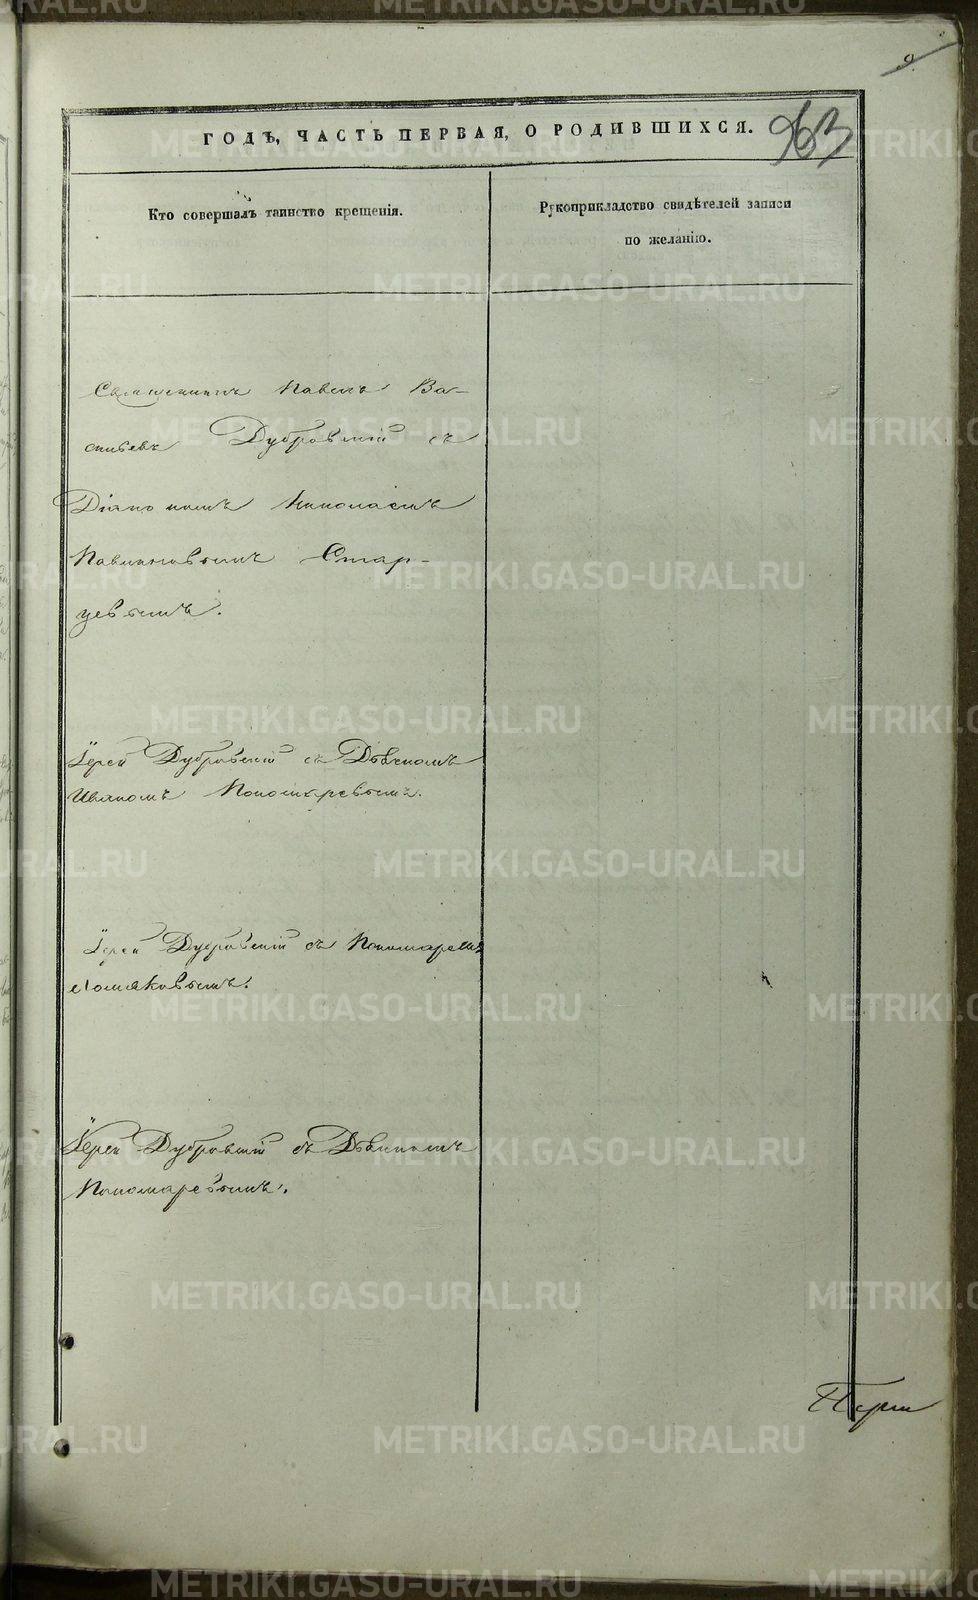 9.
963
ГОДЪ, ЧАСТЬ ПЕРВАЯ, О РОДИВШИХСЯ.
Кто совершалъ таинство крещенія.
Рукоприкладство свидѣтелей записи
по желанію.
Священникъ Павелъ Ва-
сильевъ Дубровскій съ
Діякономъ Николаемъ
Павлиновымъ Стар-
цевымъ.
Іерей Дубровскій съ Дьячкомъ
Иваномъ Пономаревымъ.
Іерей Дубровскій съ Пономаремъ
Іерей Дубровскій съ Дьячкомъ
Пономаревымъ.
METRIKI.GASO-URAL.RU